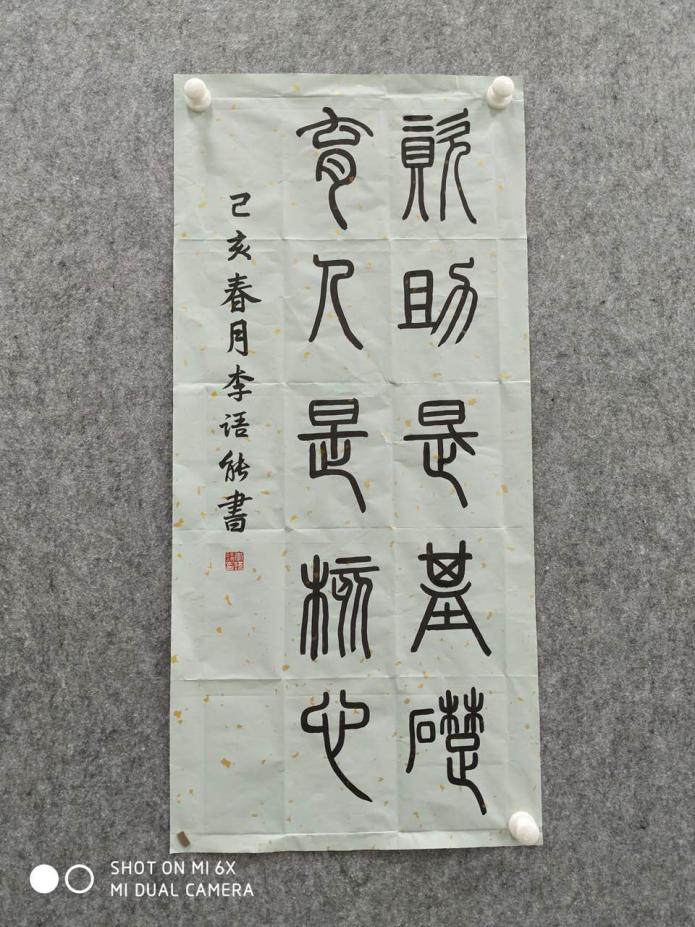 资助是基础
育人是核心
己亥春月李语能書
SHOT ON MI 6X
MI DUAL CAMERA